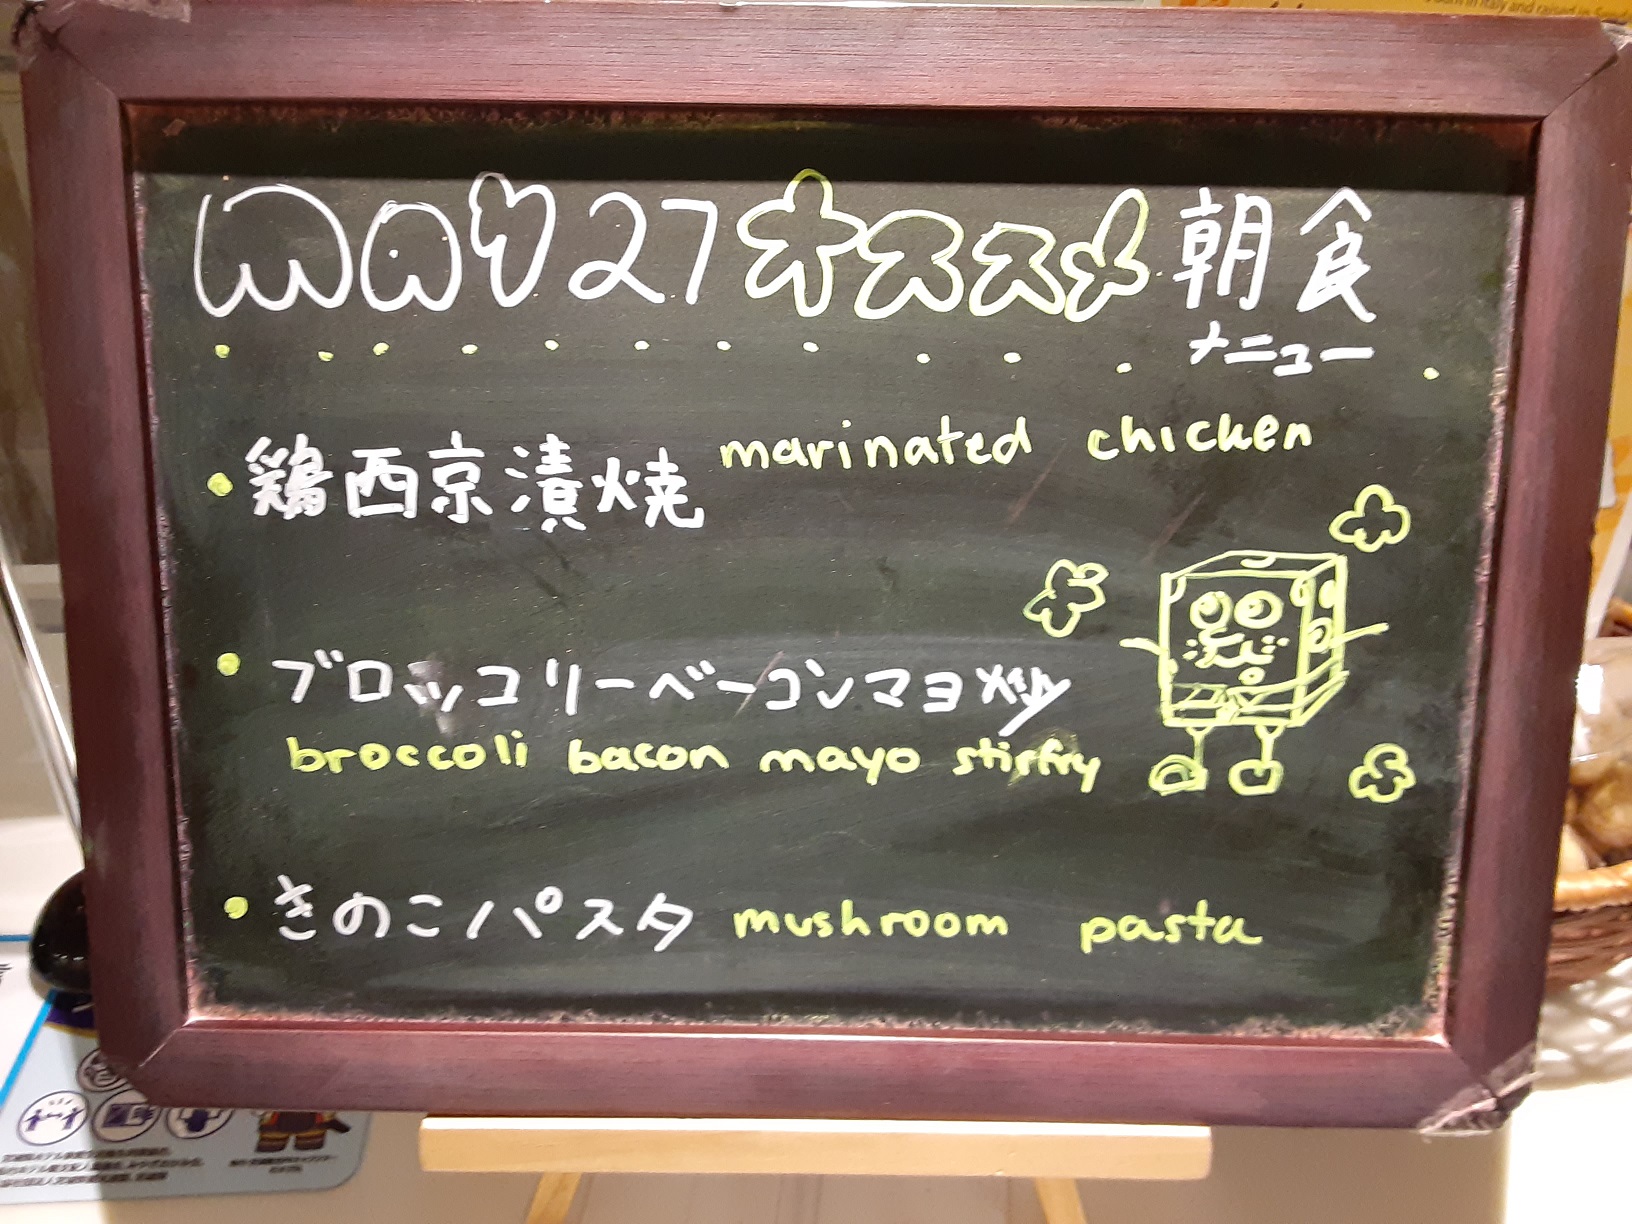 born in Italy and raised in
may 27 オススメ 朝食
メニュー
• 鶏西京漬焼 marinated chicken
• ブロッコリーベーコンマヨ炒
broccoli bacon mayo stirfry
• きのこパスタ mushroom pasta